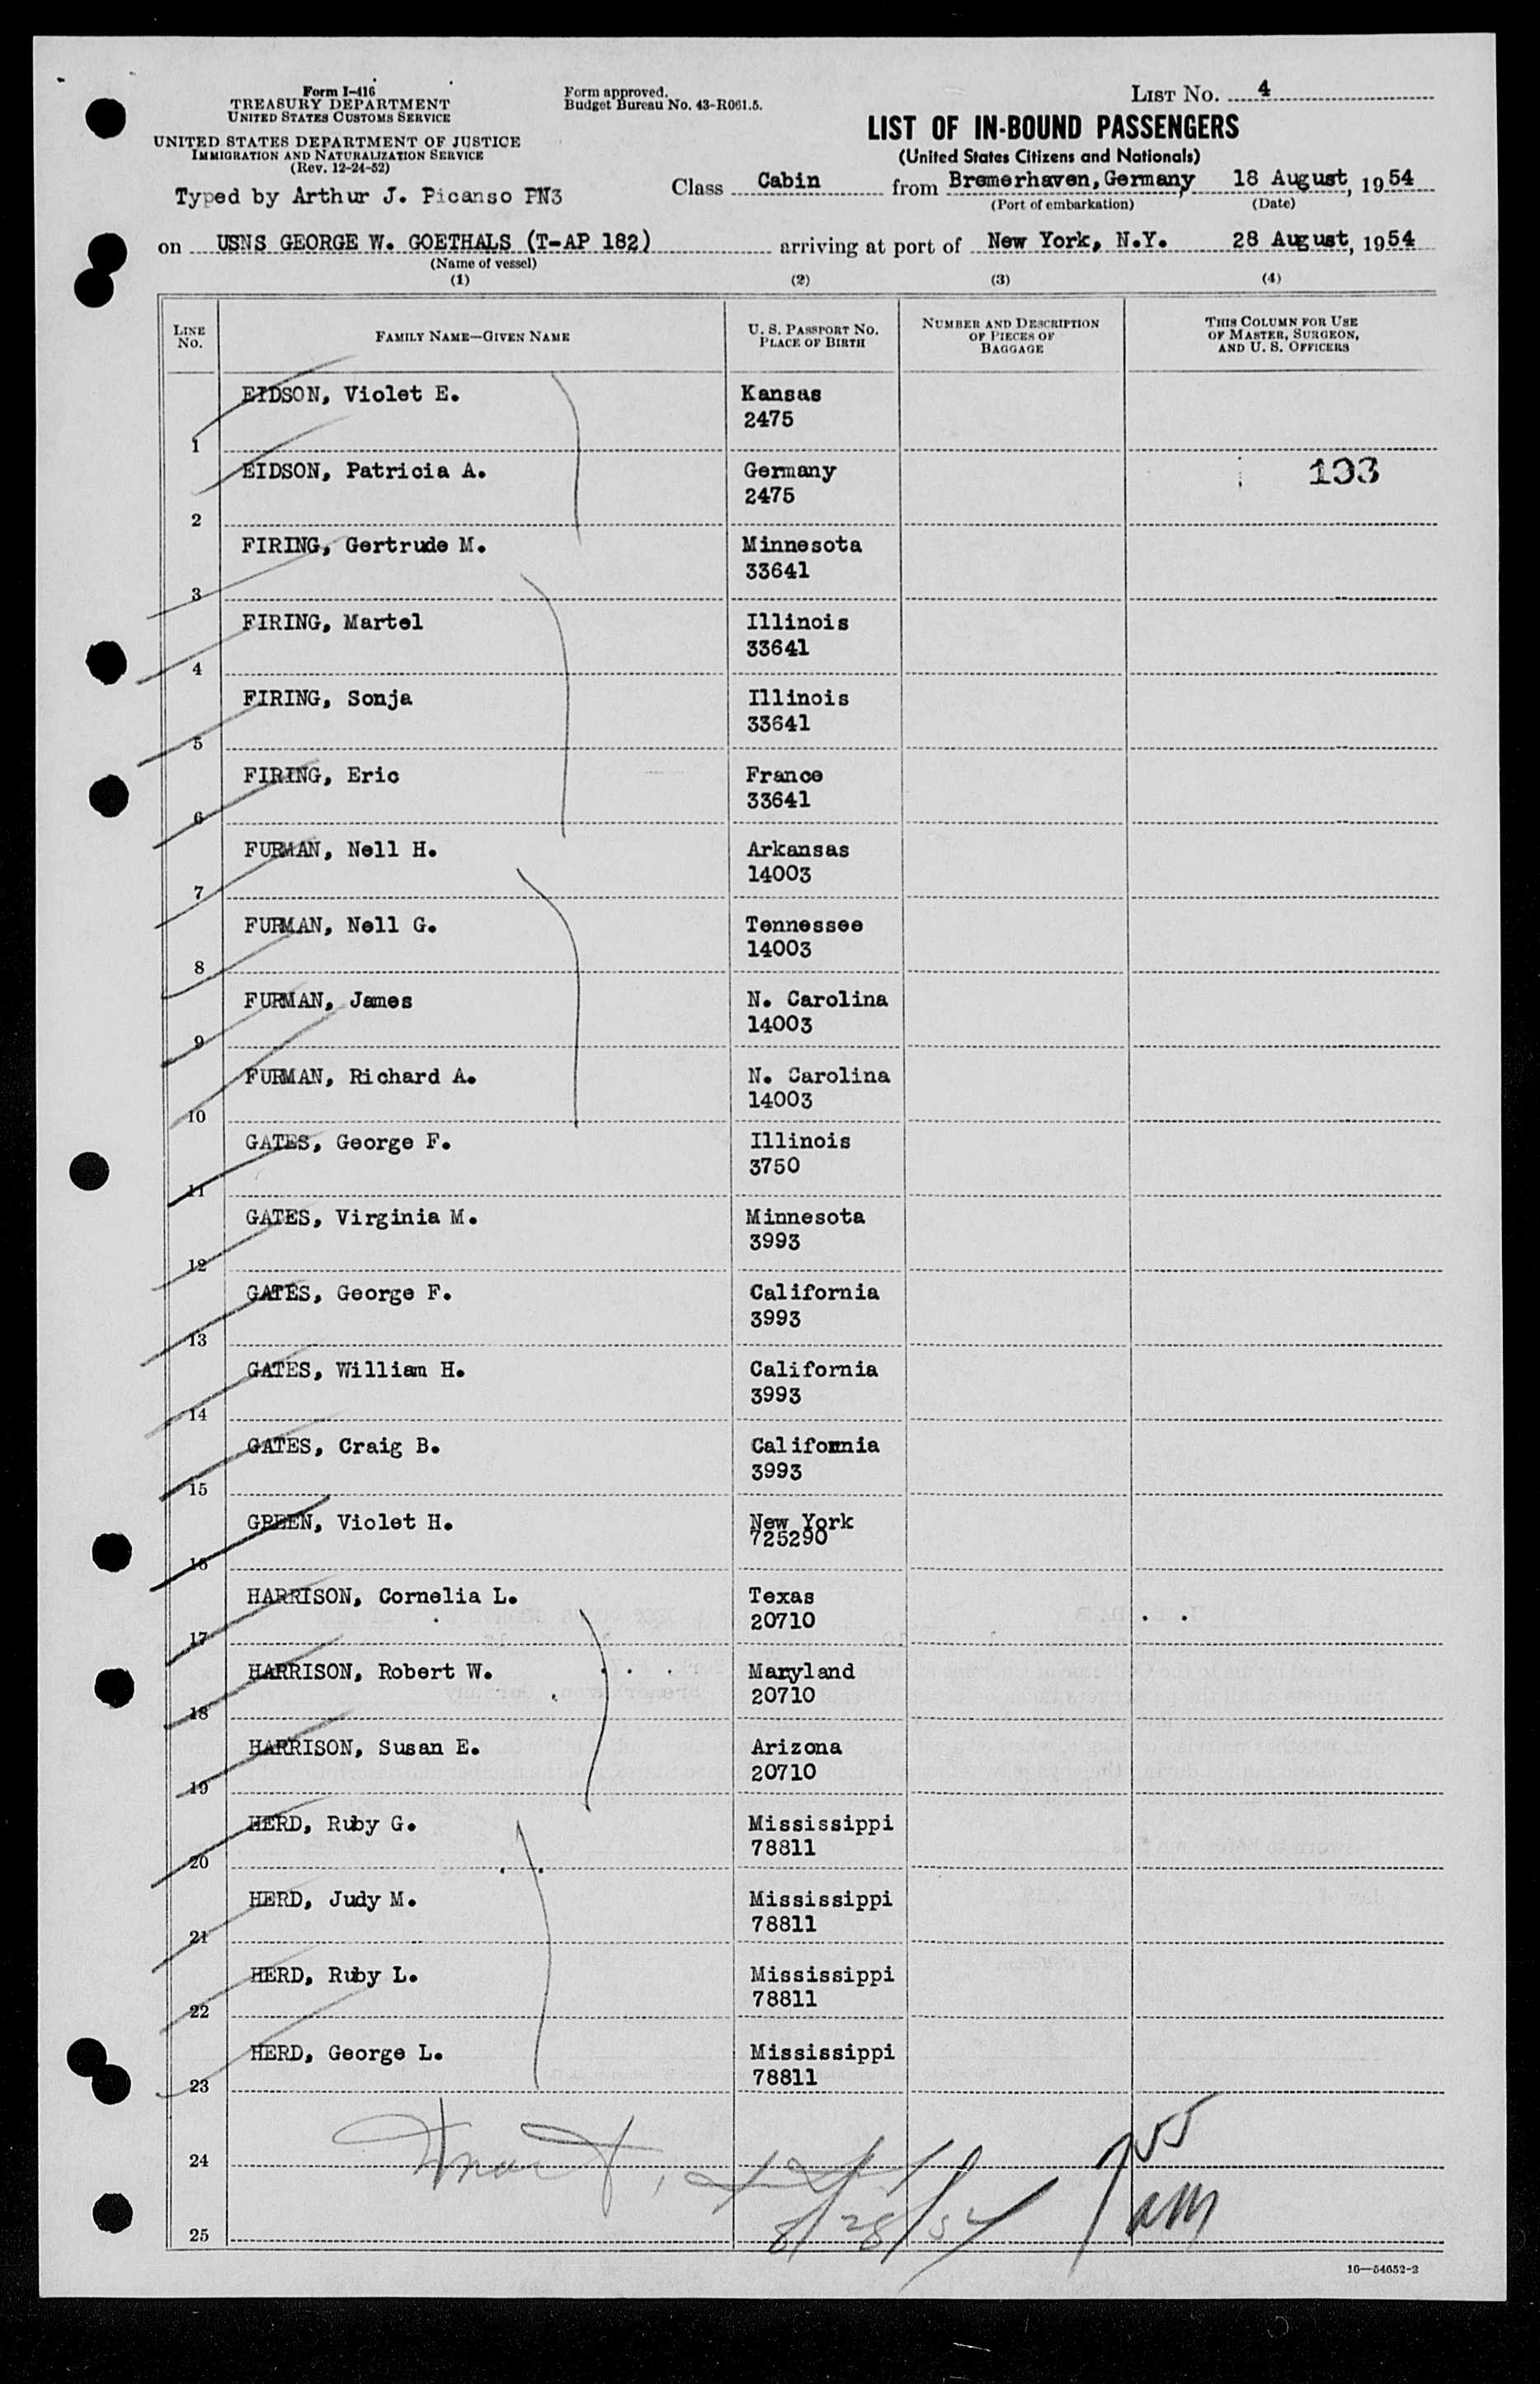 Form I-416
TREASURY DEPARTMENT
UNITED STATES CUSTOMS SERVICE
UNITED STATES DEPARTMENT OF JUSTICE
IMMIGRATION AND NATURALIZATION SERVICE
(Rev. 12-24-52)
Typed by Arthur J. Picanso PN3
Form approved.
Budget Bureau No. 43-R061.5.
LIST NO. 4
LIST OF IN-BOUND PASSENGERS
(United States Citizens and Nationals)
Class Cabin from Bremerhaven, Germany 18 August, 1954
(Port of embarkation) (Date)
on USNS GEORGE W. GOETHALS (T-AP 182) arriving at port of New York, N.Y. 28 August, 1954
(Name of vessel)
(1) (2) (3) (4)
LINE NO. FAMILY NAME—GIVEN NAME U. S. PASSPORT NO. PLACE OF BIRTH NUMBER AND DESCRIPTION OF PIECES OF BAGGAGE THIS COLUMN FOR USE OF MASTER, SURGEON, AND U. S. OFFICERS
EIDSON, Violet E. Kansas
1 2475
EIDSON, Patricia A. Germany 103
2 2475
FIRING, Gertrude M. Minnesota
3 33641
FIRING, Martel Illinois
4 33641
FIRING, Sonja Illinois
5 33641
FIRING, Eric France
6 33641
FURMAN, Nell H. Arkansas
7 14003
FURMAN, Nell G. Tennessee
8 14003
FURMAN, James N. Carolina
9 14003
FURMAN, Richard A. N. Carolina
10 14003
GATES, George F. Illinois
11 3750
GATES, Virginia M. Minnesota
12 3993
GATES, George F. California
13 3993
GATES, William H. California
14 3993
GATES, Craig B. California
15 3993
GREEN, Violet H. New York
16 725290
HARRISON, Cornelia L. Texas
17 20710
HARRISON, Robert W. Maryland
18 20710
HARRISON, Susan E. Arizona
19 20710
HERD, Ruby G. Mississippi
20 78811
HERD, Judy M. Mississippi
21 78811
HERD, Ruby L. Mississippi
22 78811
HERD, George L. Mississippi
23 78811
24
8/28/54
25
16—54652-2